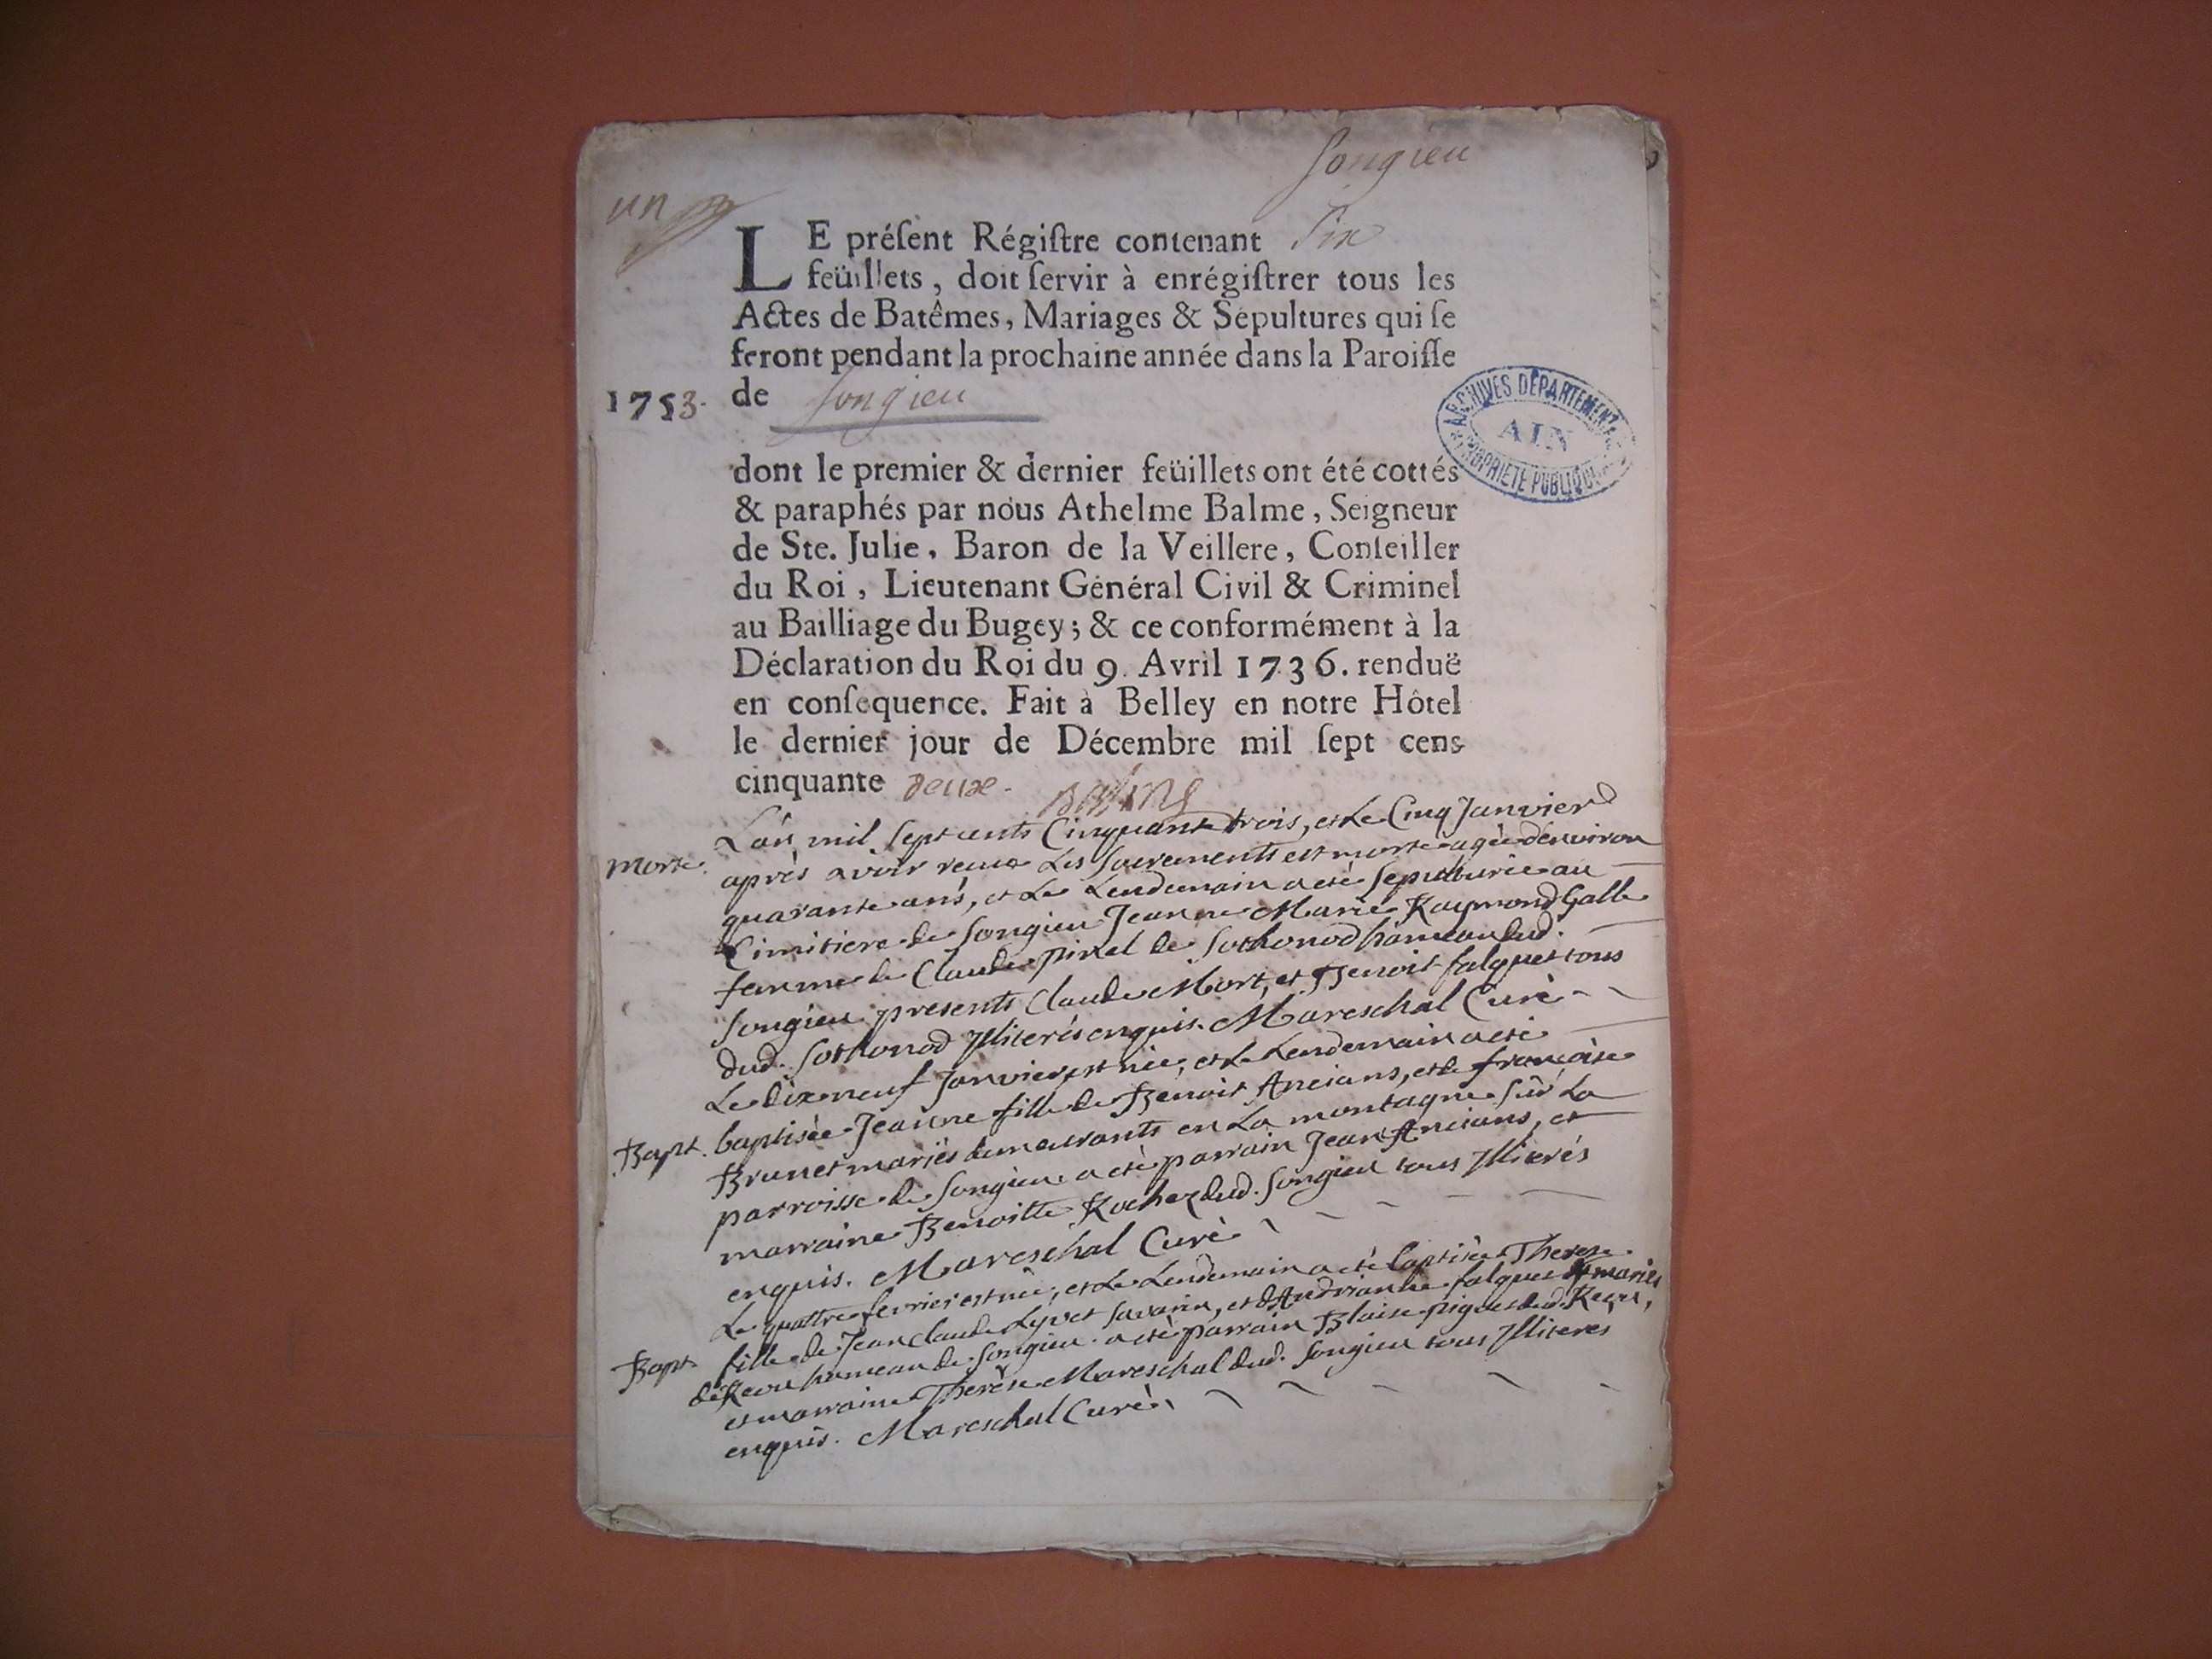 Songieu
un
LE préſent Régiſtre contenant Six
feüillets, doit ſervir à enrégiſtrer tous les
Actes de Batêmes, Mariages & Sépultures qui ſe
feront pendant la prochaine année dans la Paroiſſe
1753. de Songieu
ARCHIVES DEPARTEMENTALES
AIN
PROPRIETE PUBLIQUE
dont le premier & dernier feüillets ont été cottés
& paraphés par nous Athelme Balme, Seigneur
de Ste. Julie, Baron de la Veillere, Conſeiller
du Roi, Lieutenant Général Civil & Criminel
au Bailliage du Bugey; & ce conformément à la
Déclaration du Roi du 9. Avril 1736. renduë
en conſequence. Fait à Belley en notre Hôtel
le dernier jour de Décembre mil ſept cens
cinquante deux. Balme
L'an mil sept cents Cinquante trois, et Le Cinq Janvier
Morte. après avoir receue Les Sacrements est morte agèe d'environ
quarante ans, et Le Lendemain a etè sepulturèe au
Cimitiere de Songieu Jeanne Marie Raymond Galle
femme de Claude pinel de Sothonod hameau dud.
Songieu presents Claude Mort, et Benoit falquet tous
dud. Sothonod Illiterés enquis. Mareschal Curè
Le dixneuf Janvier est nèe, et Le Lendemain a etè
Bapt. baptisèe Jeanne fille de Benoit Ancians, et de françoise
Brunet mariès demeurants en La montagne sur La
parroisse de Songieu a etè parrain Jean Ancians, et
marraine Benoitte Rochez dud. Songieu tous Illiterés
enquis. Mareschal Curè
Le quattre fevrier est nèe, et Le Lendemain a etè baptisèe Therese
Bapt. fille de Jean Claude Lyvet Savarin, et d'Andrianne falquet mariès
de hameau de Songieu. a etè parrain Blaise piquet dud.
et marraine Therèse Mareschal dud. Songieu tous Illiteres
enquis. Mareschal Curè